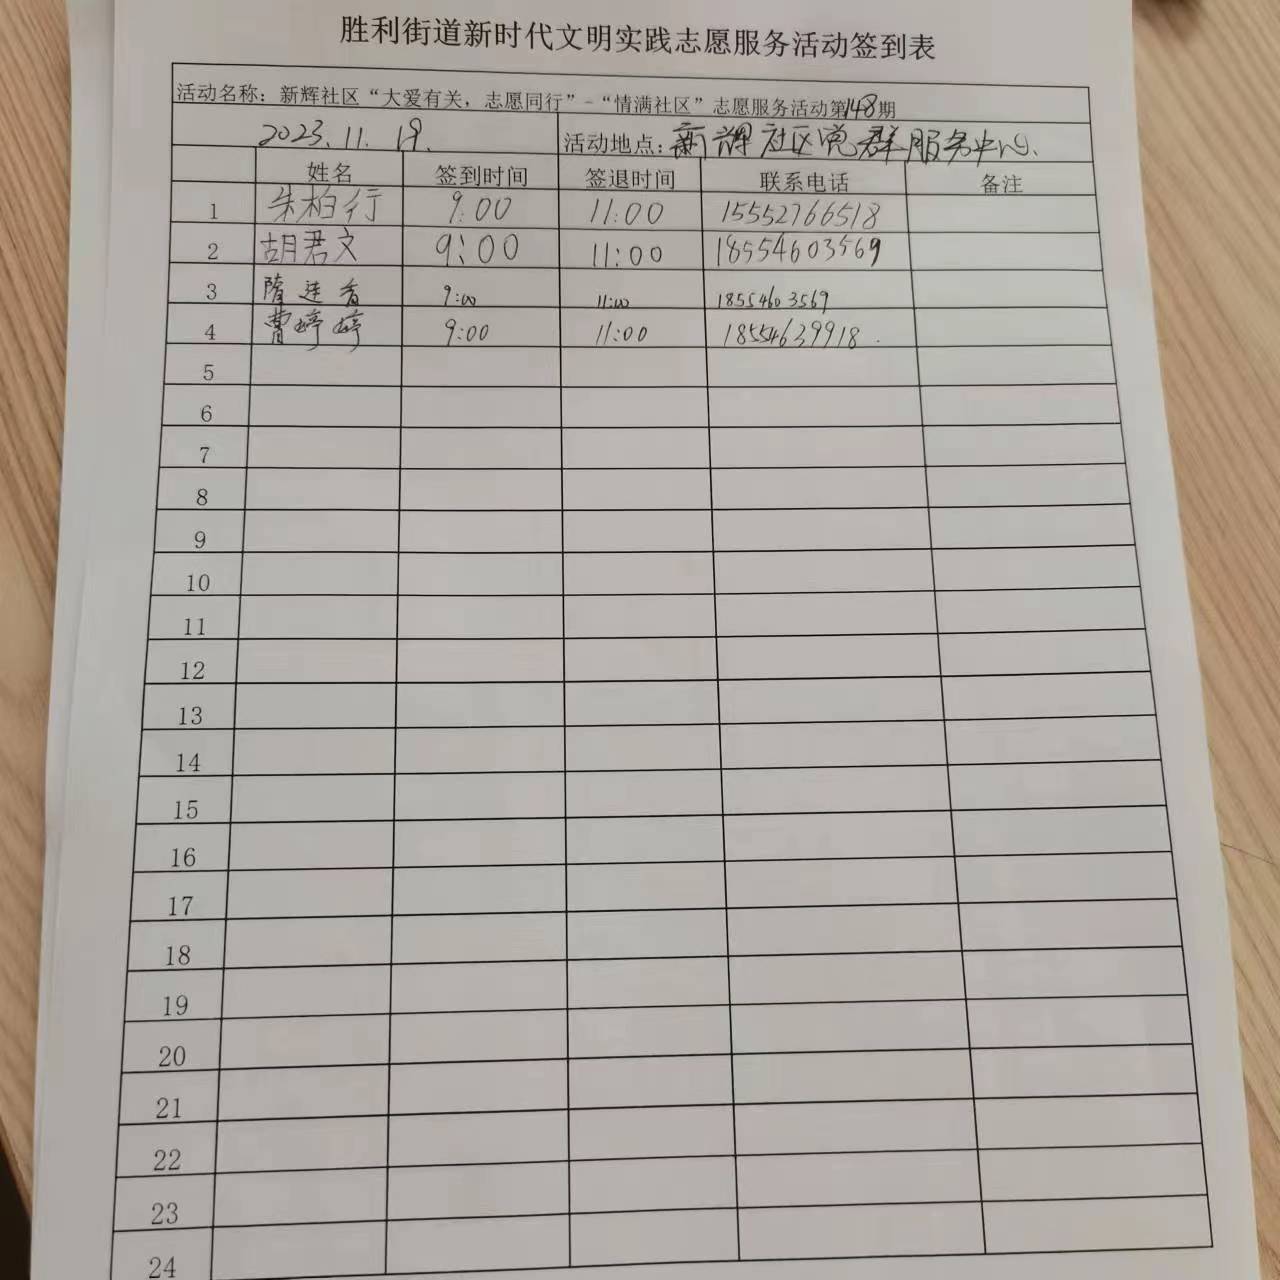 胜利街道新时代文明实践志愿服务活动签到表
活动名称：新辉社区“大爱有关，志愿同行”-“情满社区”志愿服务活动第148期
2023.11.19. 活动地点：新辉社区党群服务中心.
姓名 签到时间 签退时间 联系电话 备注
1 朱柏行 9:00 11:00 15552766518
2 胡君文 9:00 11:00 18554603569
3 隋莲香 9:00 11:00 18554603569
4 曹婷婷 9:00 11:00 18554639918.
5
6
7
8
9
10
11
12
13
14
15
16
17
18
19
20
21
22
23
24